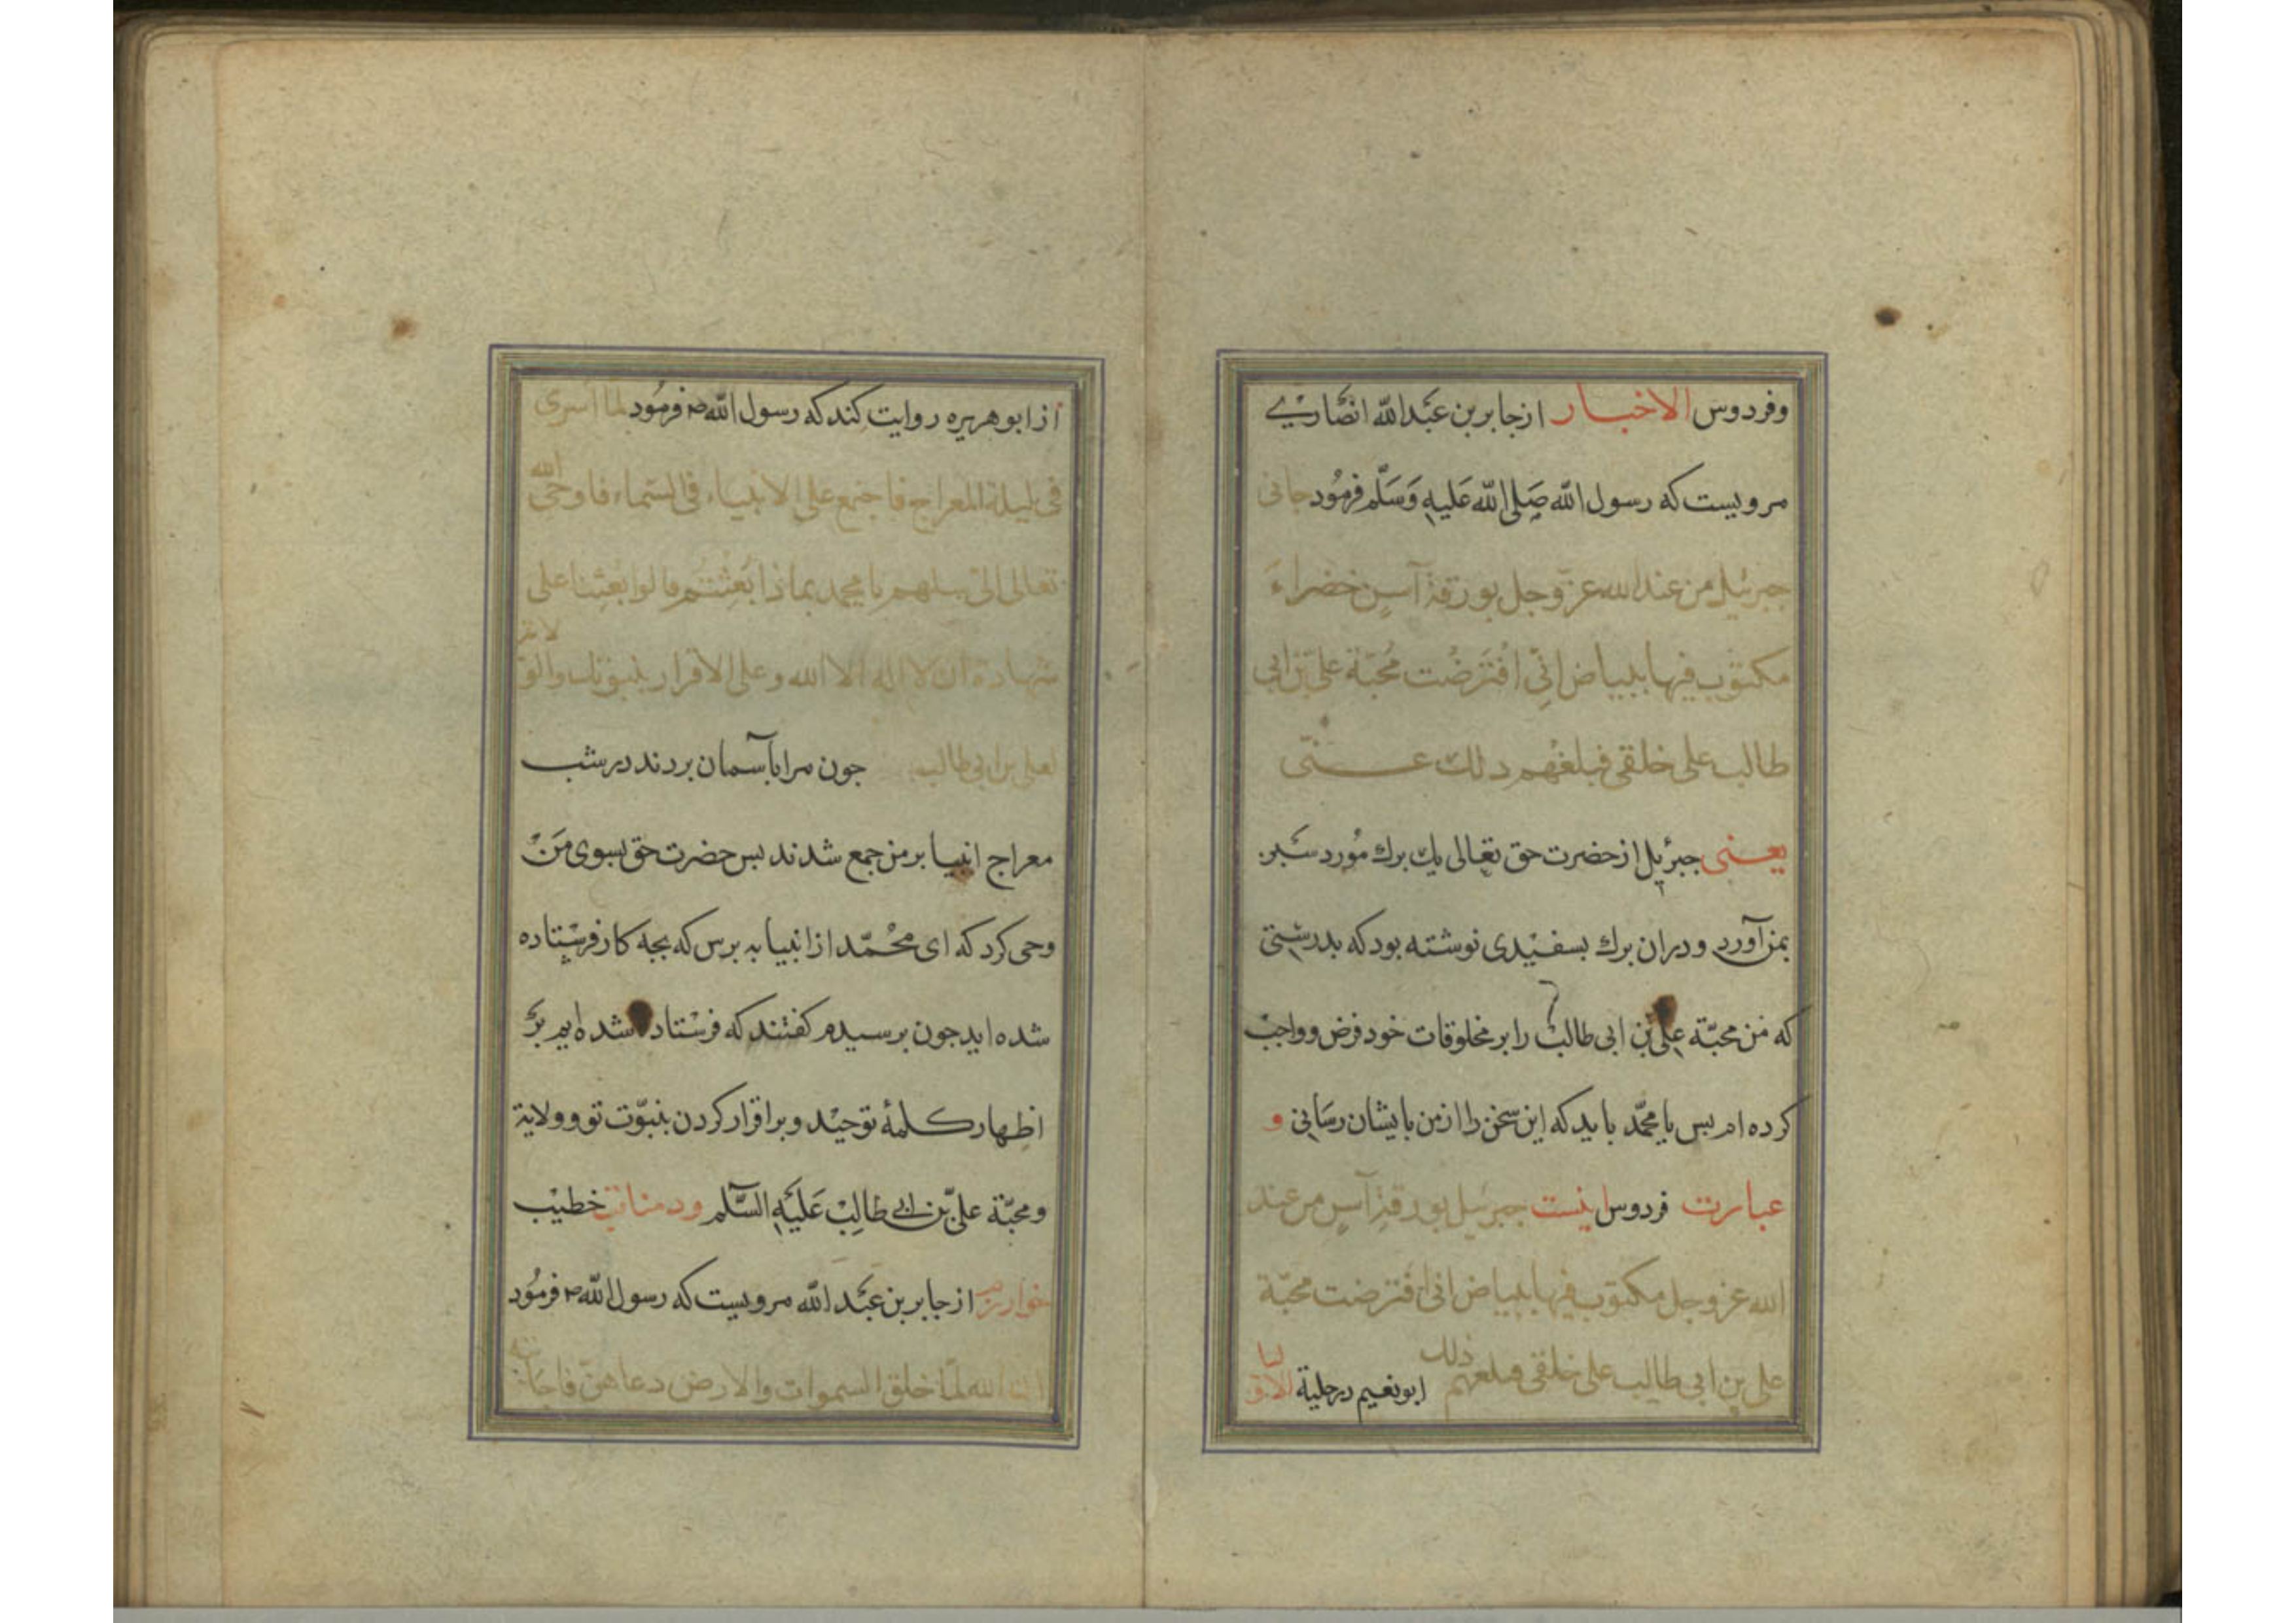 وفردوس الاخبار ازجابربن عبدالله انصاری
مرویست که رسول الله صلی الله علیه وسلم فرمود جانی
جبرئیل من عندالله عز وجل بورقة آس خضراء
مکتوب فیها ببیاض انی افترضت محبة علی بن ابی
طالب علی خلقی فبلغهم ذلك عنی
یعنی جبرئیل ازحضرت حق تعالی یك برك مورد سبز
بمن آورد ودران برك بسفیدی نوشته بود که بدرستی
که من محبة علی بن ابی طالب را بر مخلوقات خود فرض وواجب
کرده ام بس یا محمد باید که این سخن را ازمن بایشان رسانی و
عبارت فردوس اینست جبرئیل بورقة آس من عند
الله عز وجل مکتوب فیها ببیاض انی افترضت محبة
علی بن ابی طالب علی خلقی فبلغهم ذلك ابونعیم درحلیة الاولیا
ازابوهریره روایت کند که رسول الله ص فرمود لما اسری
فی لیلة المعراج فاجمع علی الانبیاء فی السماء فاوحی الله
تعالی الی سلهم یا محمد بماذا بعثتم قالوا بعثنا علی
شهادة ان لا اله الا الله وعلی الاقرار بنبوتك والولایة
لعلی بن ابی طالب جون مرا بآسمان بردند درشب
معراج انبیا برمن جمع شدند بس حضرت حق بسوی من
وحی کرد که ای محمد ازانبیا به برس که بجه کار فرستاده
شده اید جون برسیدم کفتند که فرستاده شده ایم بر
اظهار کلمۀ توحید وبراقرار کردن بنبوت تو وولایة
ومحبة علی بن ابی طالب علیه السلم ودمناقب خطیب
خوارزم ازجابربن عبدالله مرویست که رسول الله ص فرمود
ان الله لما خلق السموات والارض دعاهن فاجابنه